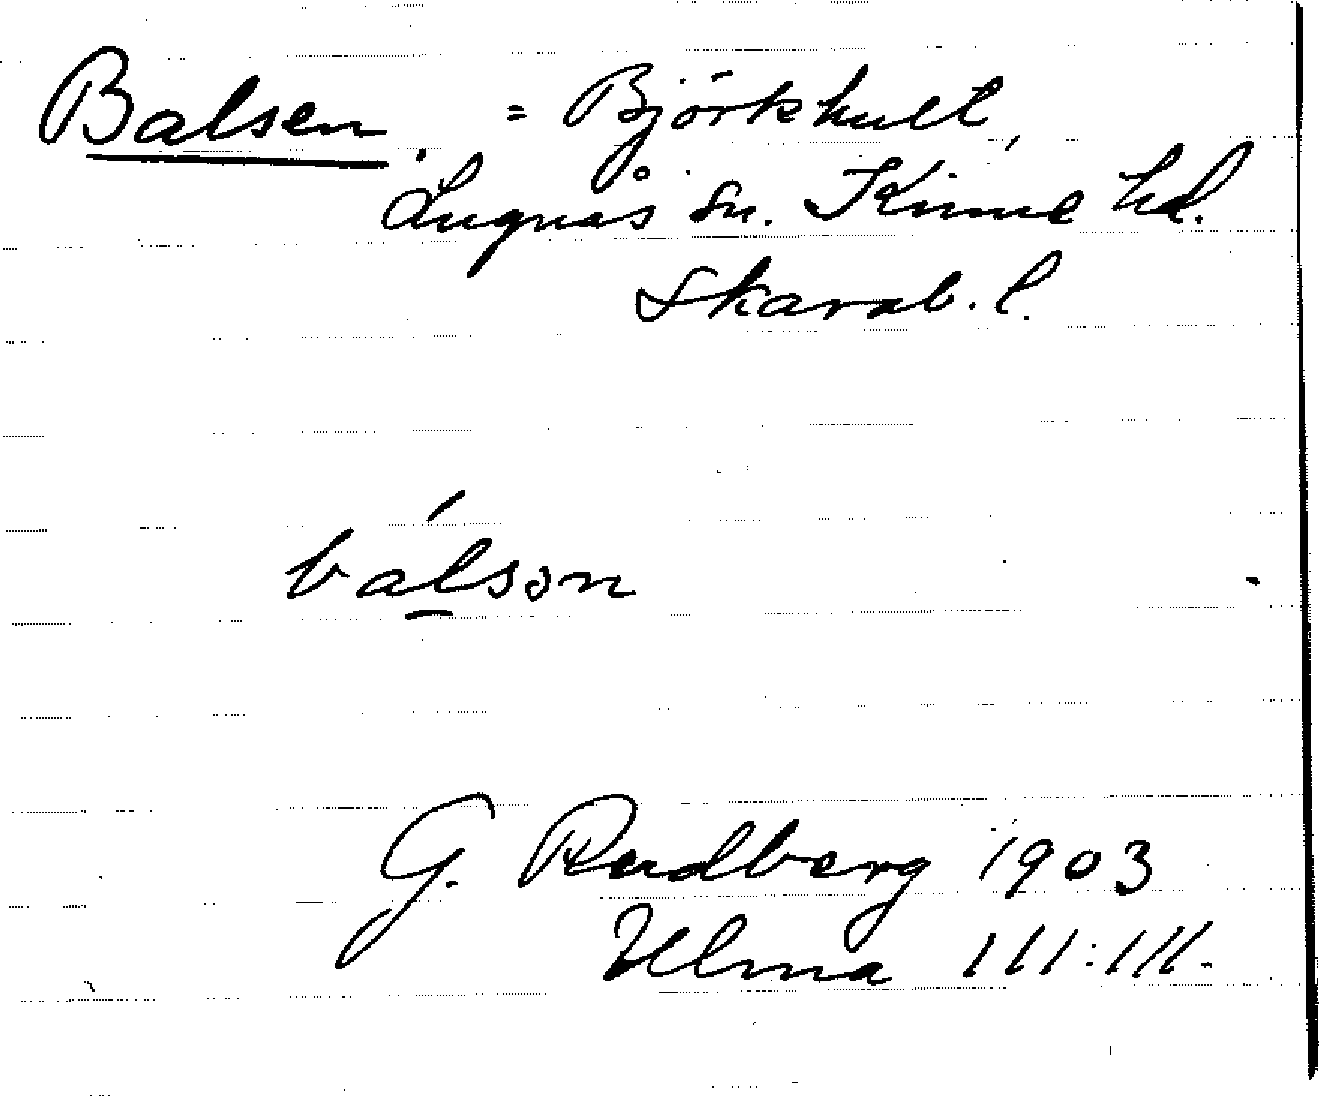 Balsen. = Björkhult,
Lugnås sn. Kinne hd.
Skarab. l.
bálson
G. Rudberg 1903
Ulma 111:111.